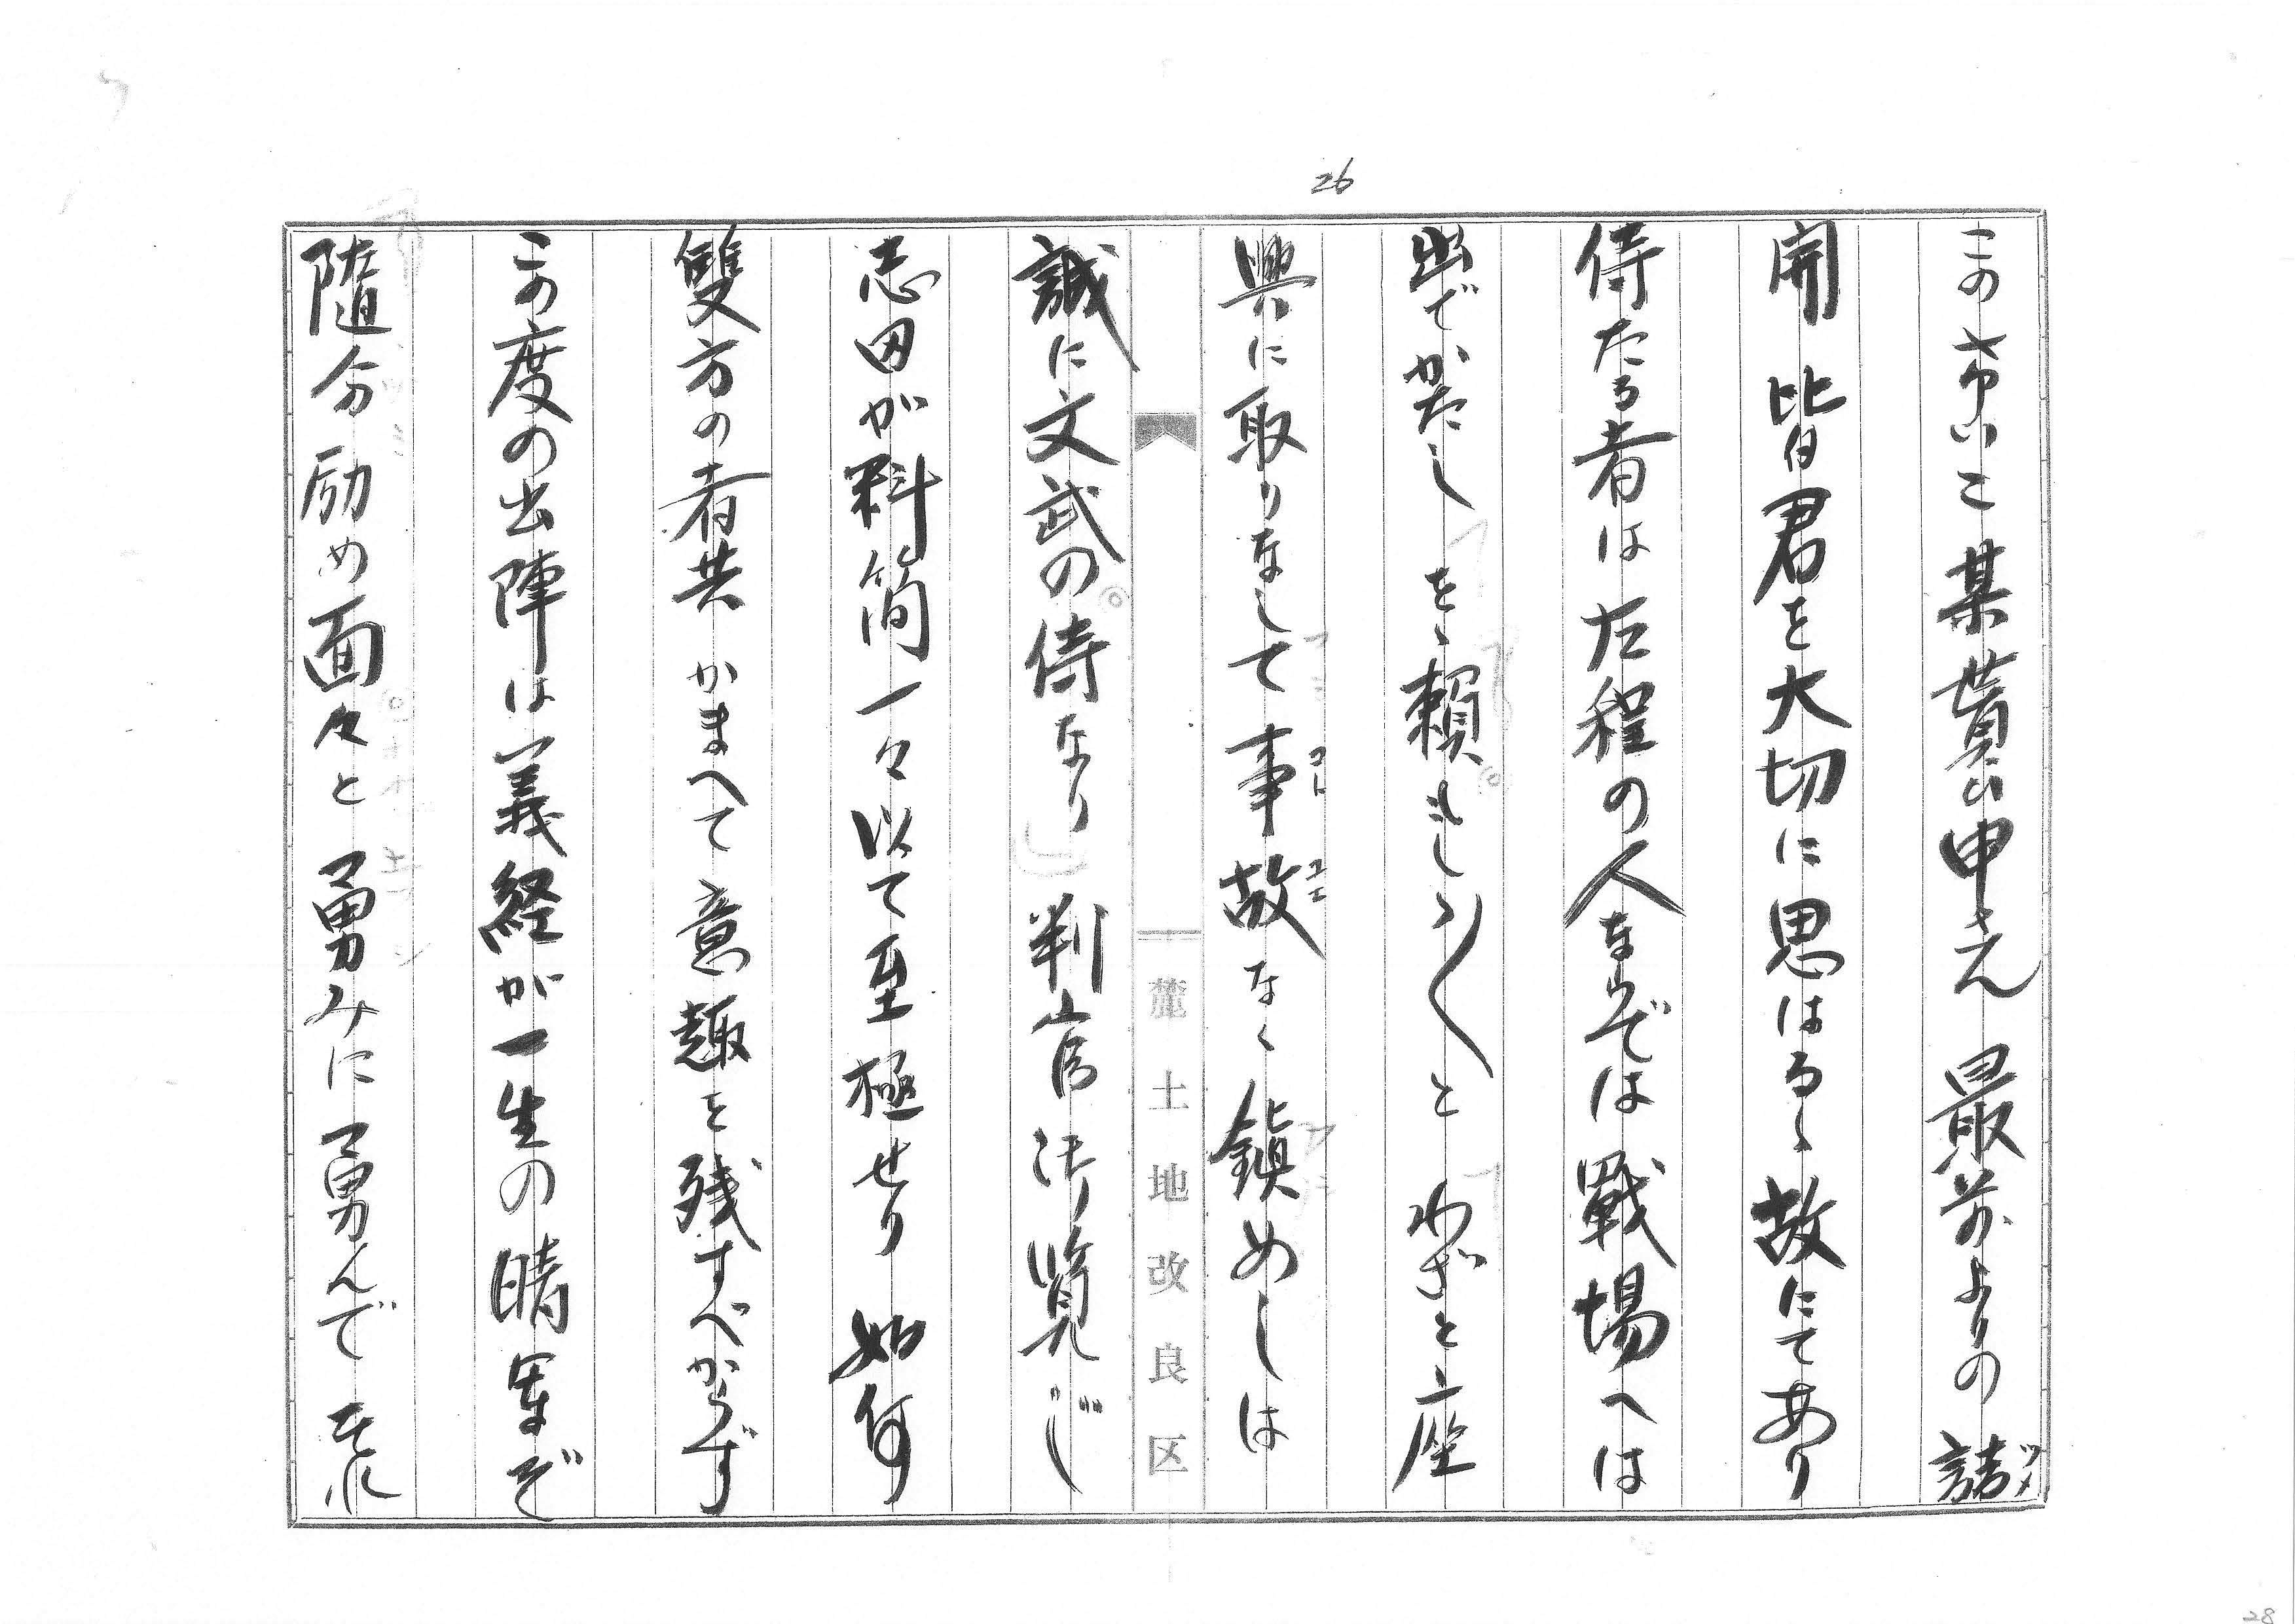 26
この
某貰ひ申さん 最前よりの詰
ツメ
開 皆君を大切に思はるゝ故にてあり
侍たる者は左程の人なくでは戰場へは
出でがたし を、頼もしゝ〱と わざと座
興に取りなして事故なく鎭めしは
コト ユエ
誠に文武の侍なり 判官御覧じ
志田が料簡一々以て至極せり 如何
雙方の者共 かまへて意趣を残すべからず
この度の出陣は義経が一生の晴軍ぞ
随分励め面々と 勇みに勇んで それ
麓土地改良区
28